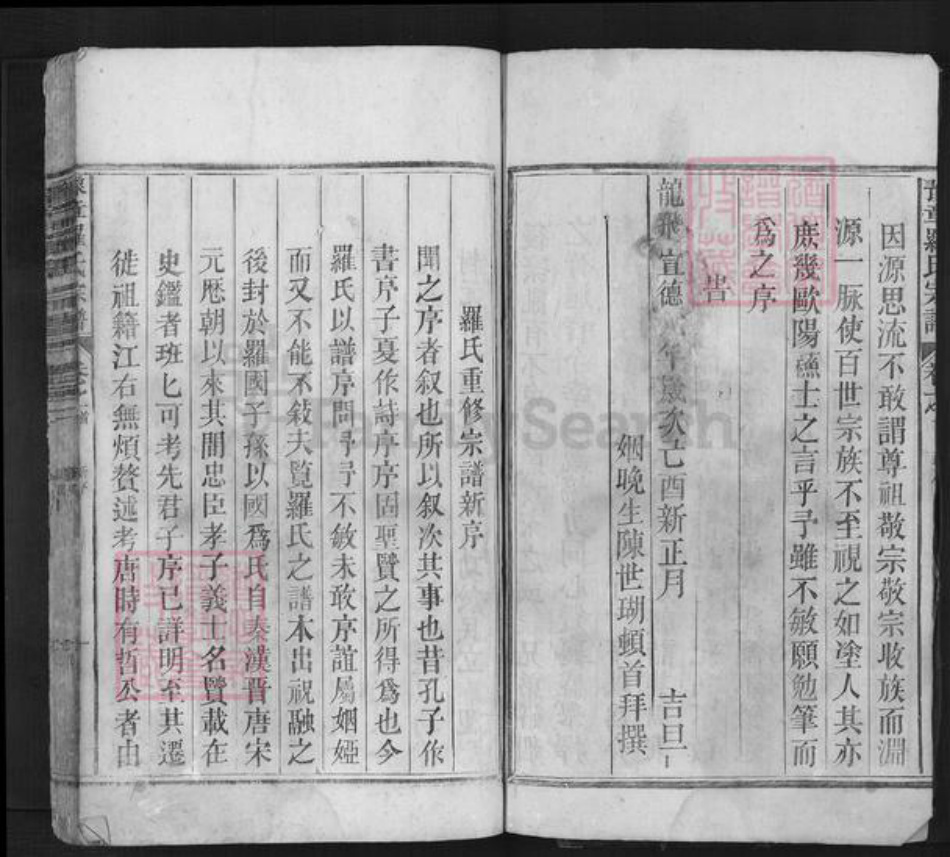 因源思流不敢謂尊祖敬宗敬宗收族而淵
源一脉使百世宗族不至視之如塗人其亦
庶幾歐陽蘇士之言乎予雖不敏願勉筆而
為之序
旹
龍飛宣德八年歲次己酉新正月 吉旦
姻晚生陳世瑚頓首拜撰
豫章羅氏宗譜
羅氏重修宗譜新序
聞之序者叙也所以叙次其事也昔孔子作
書序子夏作詩序序固聖賢之所得為也今
羅氏以譜序問予予不敏未敢序誼屬姻婭
而又不能不敍夫覧羅氏之譜本出祝融之
後封於羅國子孫以國為氏自秦漢晉唐宋
元歷朝以來其間忠臣孝子義士名賢載在
史鑑者班匕可考先君子序已詳明至其遷
徙祖籍江右無煩贅述考唐時有哲公者由
豫章羅氏宗譜
FamilySearch